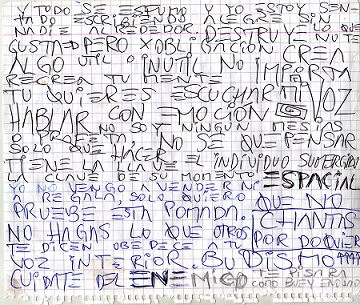 Y TODO SE ESFUMO Y YO ESTOY SEN
TADO ESCRIBIENDO ALEGRE SIN
NADIE ALREDEDOR. DESTRUYE LO QUE NO TE
GUSTA PERO X OBLIGACION CREA
ALGO UTIL O INUTIL NO IMPORTA
RECREA TU MENTE
TU QUIERES ESCUCHAR TU VOZ
HABLAR CON EMOCION
NO SOY NINGUN MESIAS
O PROFETA, NO SE QUE PENSAR
SOLO QUE HACER
TIENE LA CLAVE EL INDIVIDUO SUMERGIR
DE SU MOMENTO ESPACIAL
YO NO VENGO A VENDER NI
A REGALAR, SOLO QUIERO QUE NO
PRUEBE ESTA POMADA. CHANTAS
NO HAGAS LO QUE OTROS POR DOQUIER
TE DICEN OBEDECE A TU
VOZ INTERIOR. BUDISMO
CUIDATE DEL ENEMIGO TE PISARA
COMO BUEY ENDARO